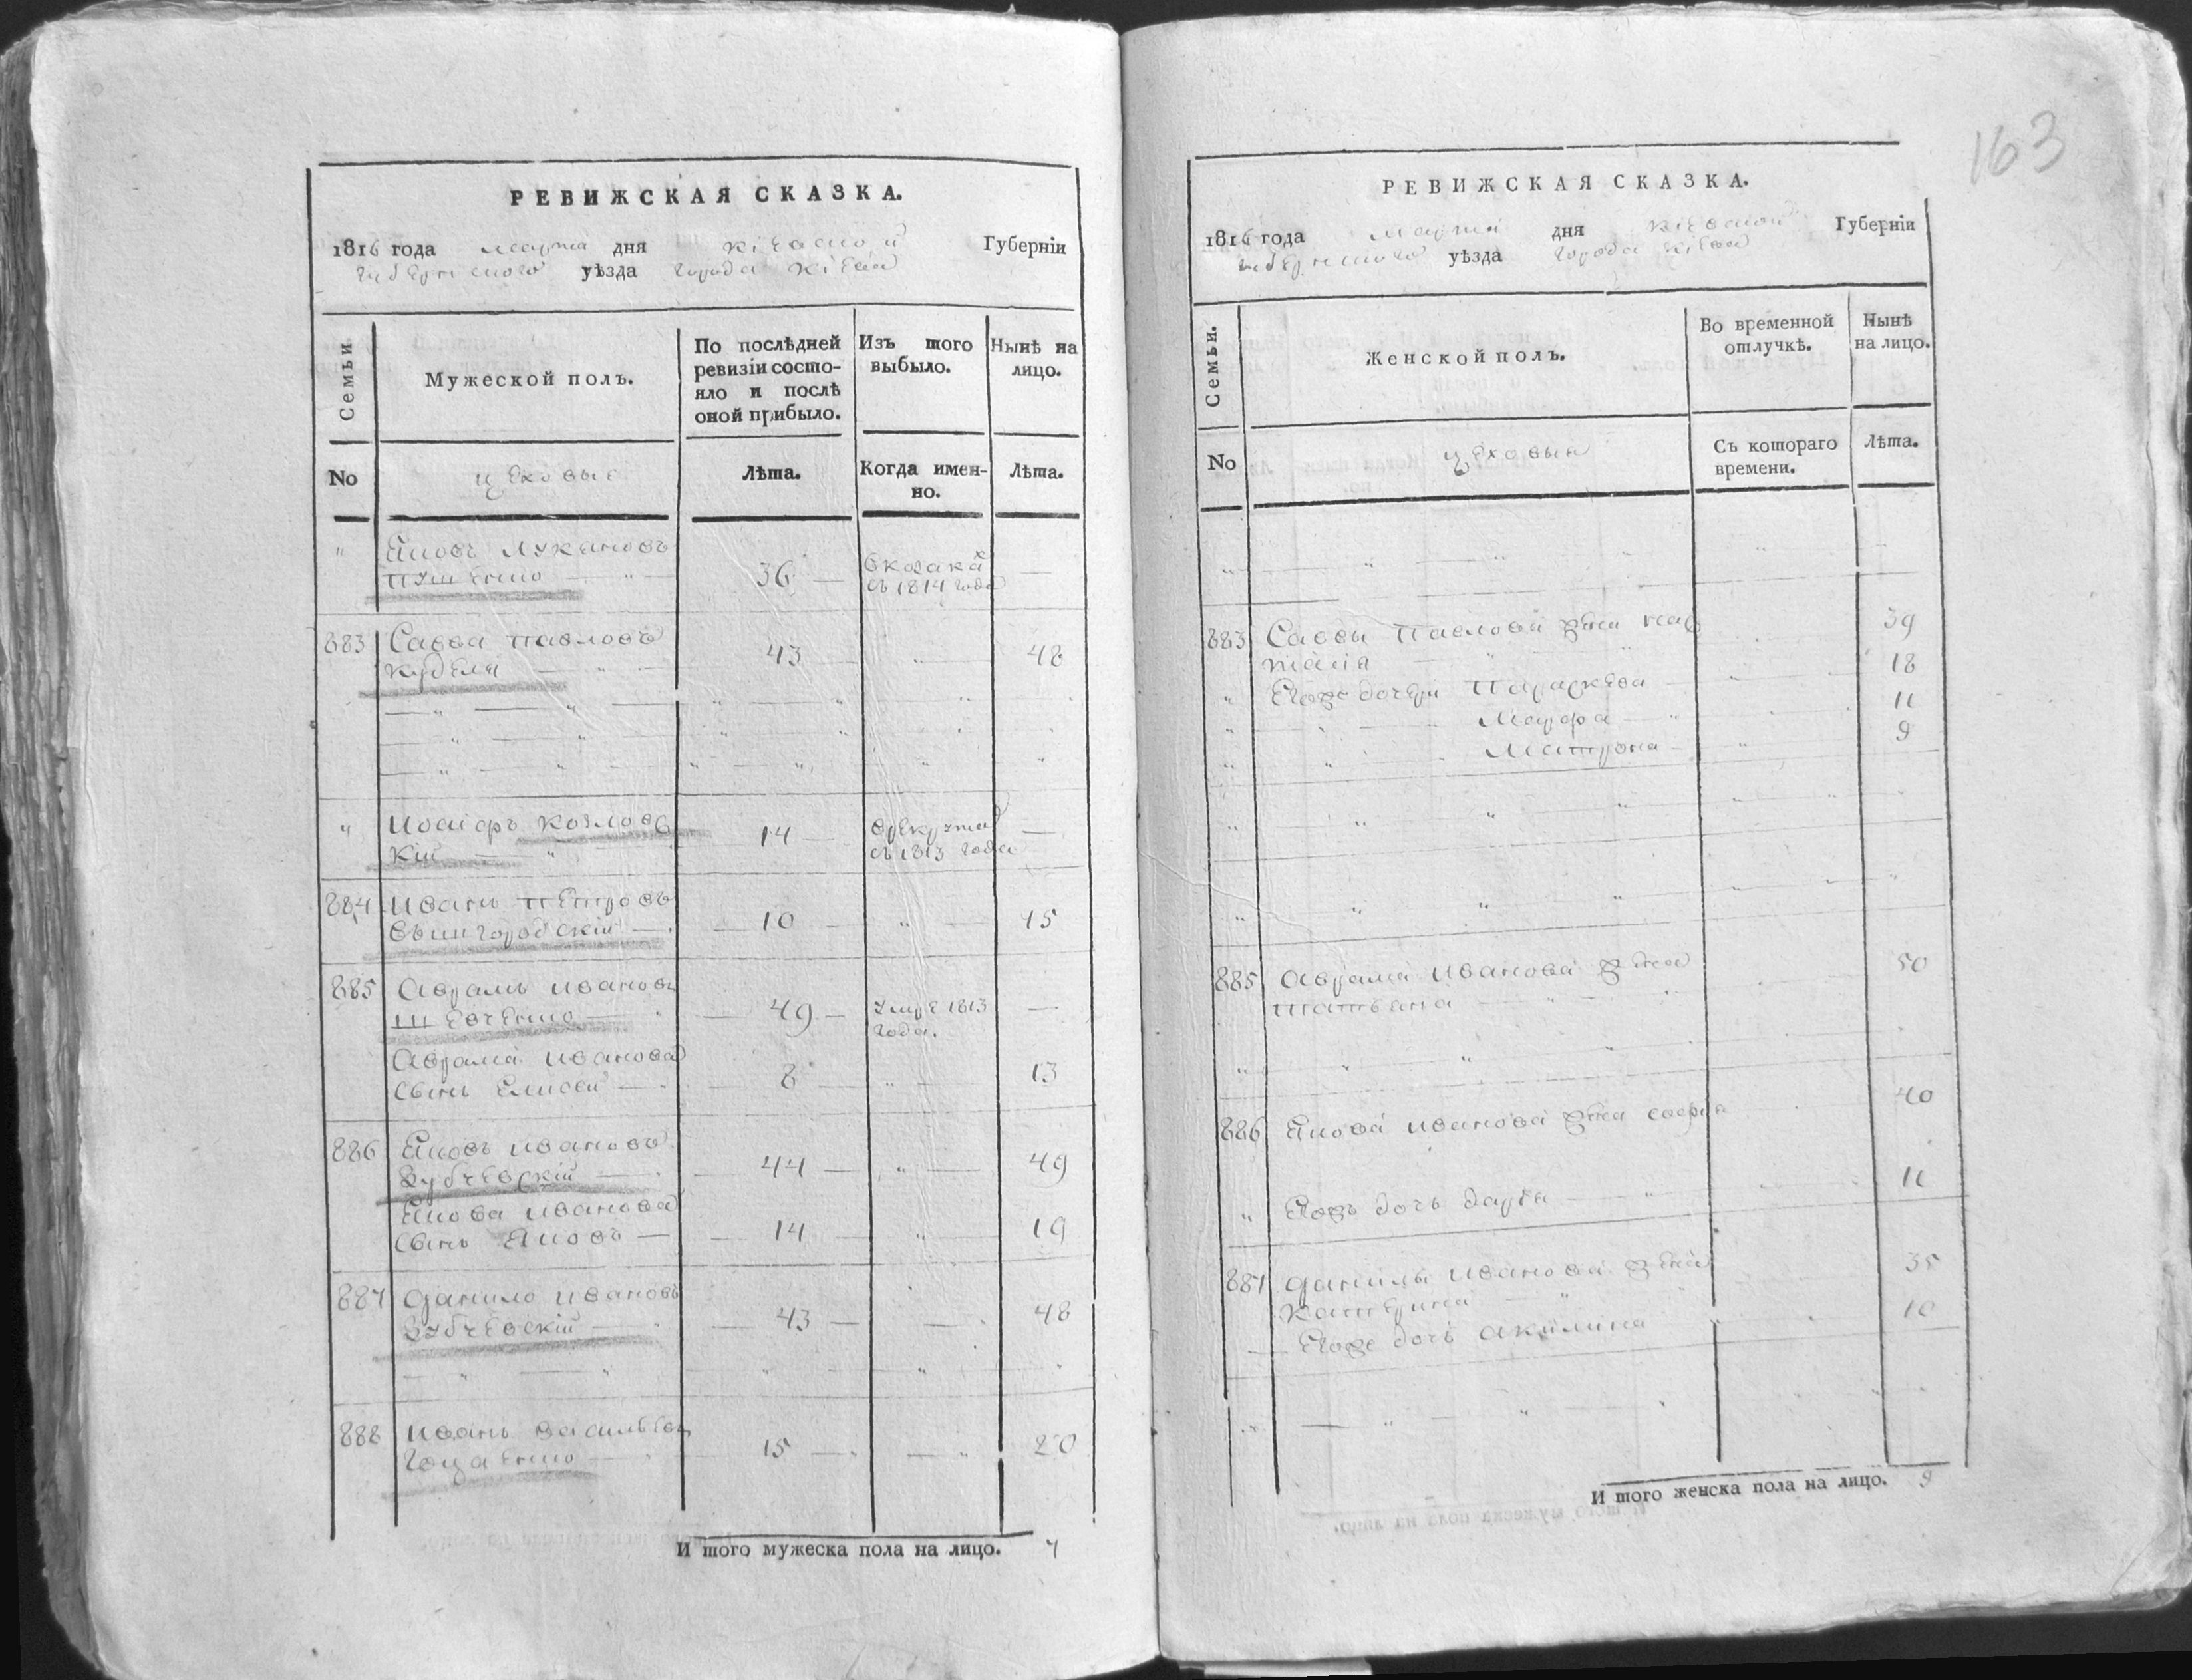 РЕВИЖСКАЯ СКАЗКА.
1816 года Марта дня Кіевской Губерніи
Губернского уѣзда города Кіева
Семьи
Мужеской полъ.
По послѣдней ревизіи состояло и послѣ оной прибыло.
Изъ того выбыло.
Нынѣ на лицо.
No
цеховые
Лѣта.
Когда именно.
Лѣта.
" Яковъ Лукановъ
36 — в козаках —
съ 1814 года
883 Савва Павловъ
Кубеля — " — 43 " 48
" козловс
кій — " 14 — врекруты —
съ 1813 года
884 Иванъ Петровъ
Вышгородскій — 10 — " 15
885 Аврамъ Ивановъ
Шевченко — 49 — умре 1813 —
года.
Аврама Иванова
сынъ Елисей — 8 — " 13
886 Яковъ Ивановъ
Зубчевскій — 44 — " — 49
Якова Иванова
сынъ Яковъ — 14 " 19
887 Данило Ивановъ
Зубчевскій — 43 — 48
888 Иванъ Васильевъ
15 — " 20
И того мужеска пола на лицо. 7
163
РЕВИЖСКАЯ СКАЗКА.
1816 года Марта дня Кіевской Губерніи
Губернского уѣзда города Кіева
Семьи.
Женской полъ.
Во временной отлучкѣ.
Нынѣ на лицо.
No
цеховыя
Съ котораго времени.
Лѣта.
883 Саввы Павлова жена На
талія 39
" Егоже дочери Параскева — 18
" Марфа — 11
" Матрона — 9
885 Аврама Иванова жена 50
Татьяна
886 Якова Иванова жена Софія 40
" Егожъ дочь Дарья — " 11
887 Данилы Иванова жена 35
Катерина
— Егоже дочь Акилина 10
И того женска пола на лицо. 9